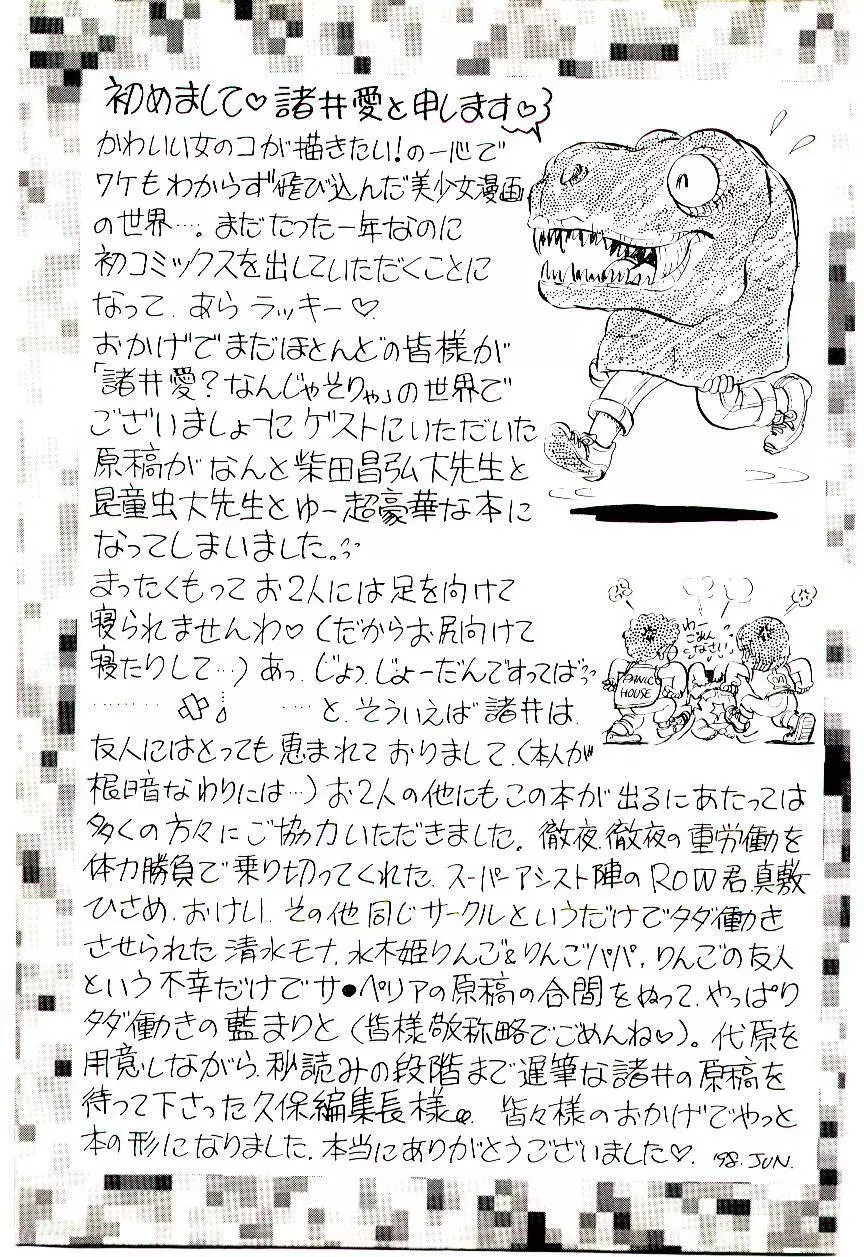 初めまして♡諸井愛と申します♡
かわいい女のコが描きたい!の一心で
ワケもわからず飛び込んだ美少女漫画
の世界…。まだたった一年なのに
初コミックスを出していただくことに
なって、あらラッキー♡
おかげでまだほとんどの皆様が
「諸井愛?なんじゃそりゃ」の世界で
ございましょーに ゲストにいただいた
原稿が なんと柴田昌弘大先生と
昆童虫大先生とゆー超豪華な本に
なってしまいました。
まったくもって お2人には足を向けて
寝られませんわ♡(だからお尻向けて
寝たりして…)あっ、じょっ、じょーだんですってば
……… …と、そういえば 諸井は、
友人にはとっても恵まれて おりまして、(本人が
根暗なわりには…)お2人の他にもこの本が出るにあたっては
多くの方々にご協力いただきました。徹夜、徹夜の重労働を
体力勝負で乗り切ってくれた、スーパーアシスト陣のROW君、真敷
ひさめ、おけい、その他同じサークルというだけでタダ働き
させられた清水モナ、水木姫りんご&りんごパパ、りんごの友人
という不幸だけでサ●ペリアの原稿の合間をぬって、やっぱり
タダ働きの藍まりと(皆様敬称略でごめんね♡)。代原を
用意しながら、秒読みの段階まで遅筆な諸井の原稿を
待って下さった久保編集長様。皆々様のおかげでやっと
本の形になりました。本当にありがとうございました♡。'98.JUN.
わーごめんなさい
PANIC
HOUSE